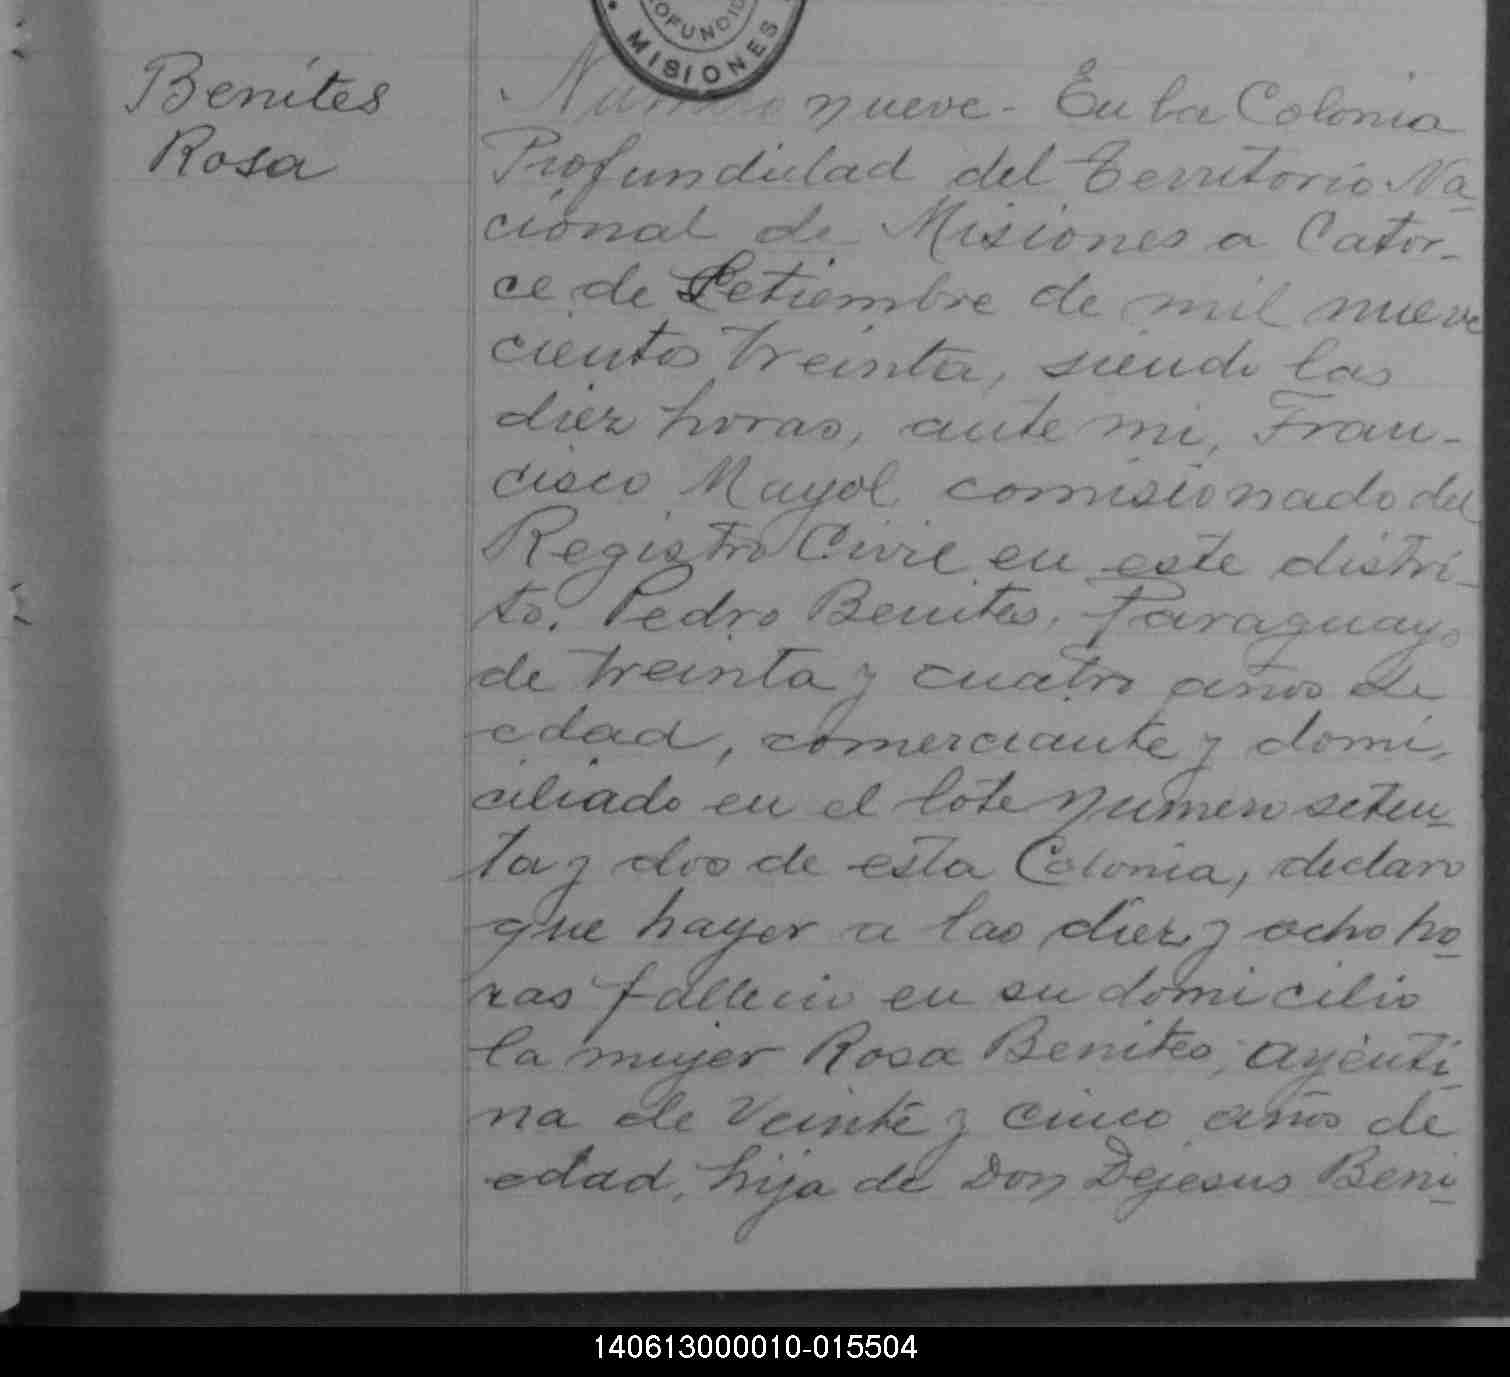 PROFUNDID
• MISIONES
Benites
Rosa
Numero nueve - En la Colonia
Profundidad del Territorio Na
cional de Misiones a Cator-
ce de Setiembre de mil nueve
cientos treinta, siendo las
diez horas, ante mi, Fran-
cisco Mayol comisionado del
Registro Civil en este distri-
to. Pedro Benites, Paraguayo
de treinta y cuatro años de
edad, comerciante y domi-
ciliado en el lote numero seten-
ta y dos de esta Colonia, declaro
que hayer a las diez y ocho ho-
ras fallecio en su domicilio
la mujer Rosa Benites, argenti-
na de veinte y cinco años de
edad, hija de Don Dejesus Beni-
140613000010-015504